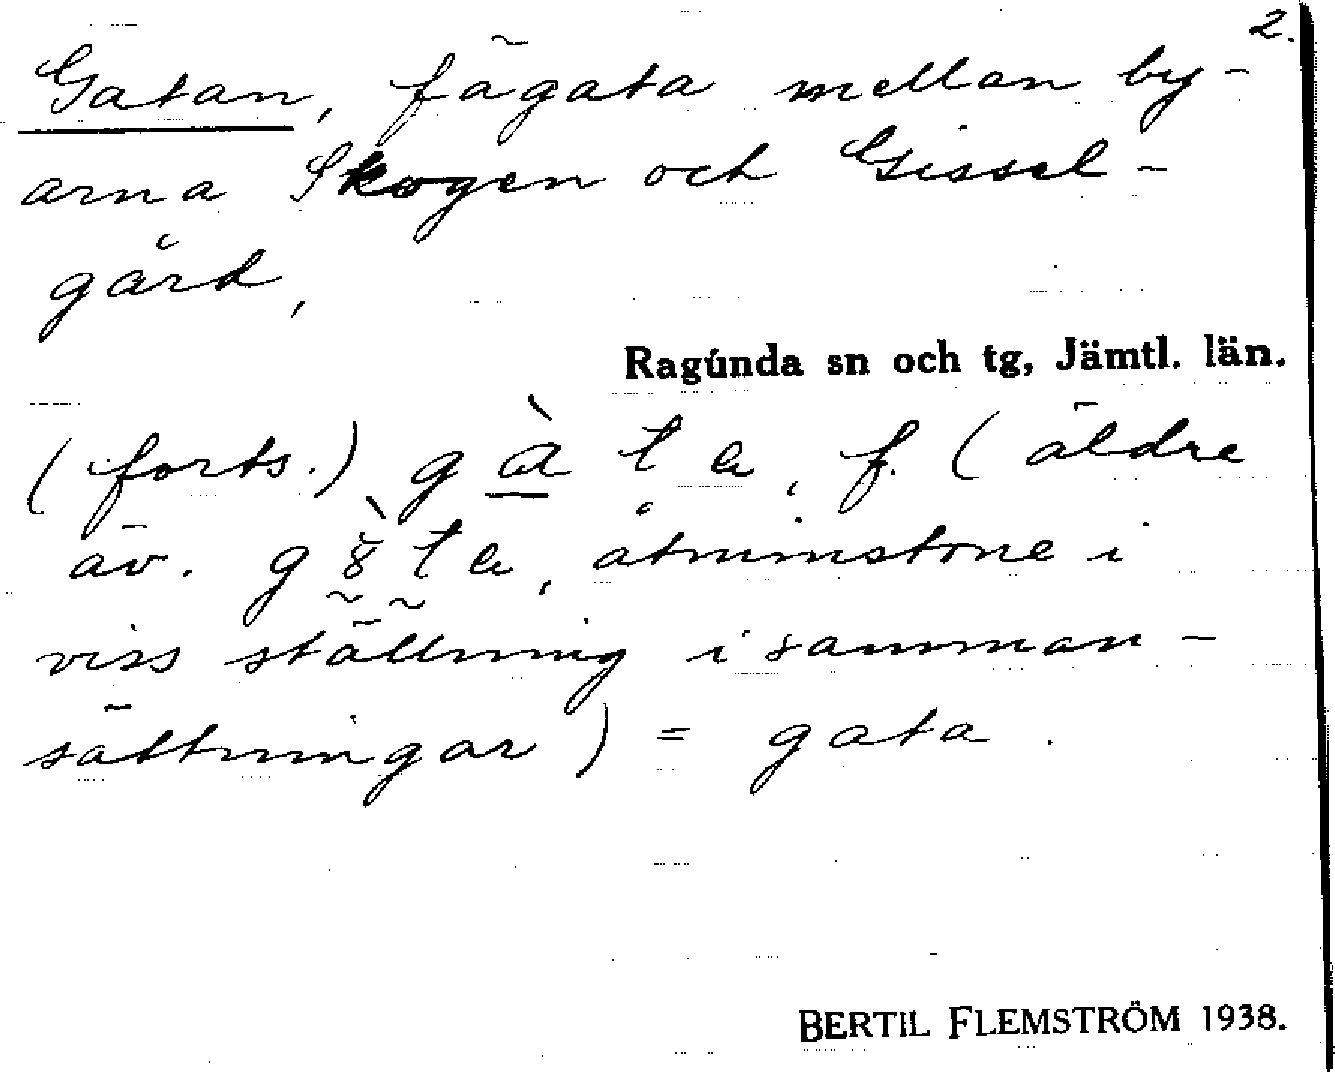 2.
Gatan, fägata mellan by-
arna Skogen och Gissel-
gård,
Ragunda sn och tg, Jämtl. län.
(forts.) g à̲ t a, f. (äldre
äv. g t a, åtminstone i
viss ställning i samman-
sättningar) = gata.
BERTIL FLEMSTRÖM 1938.